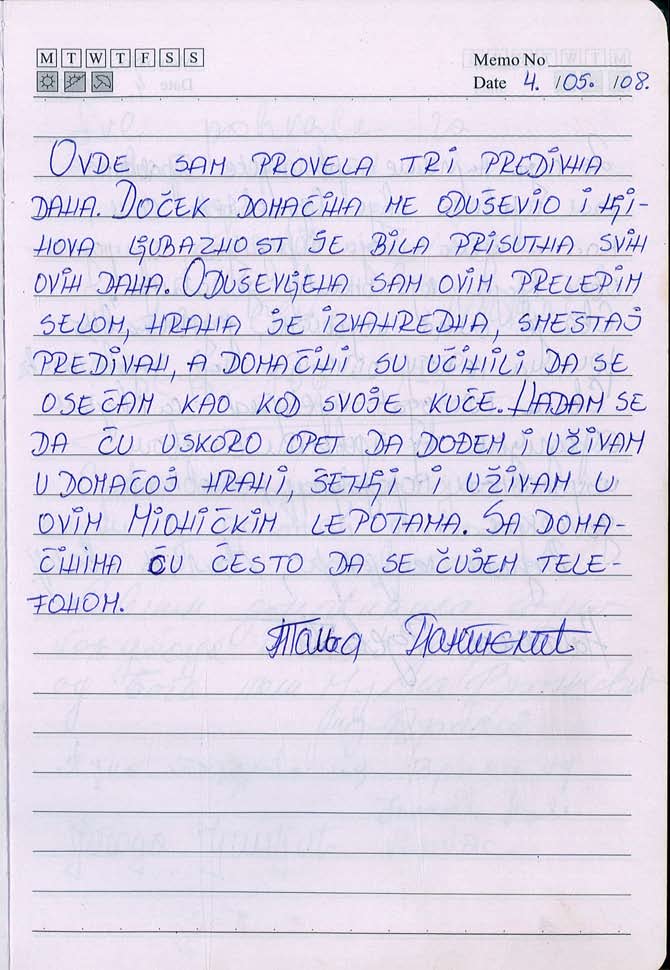 M T W T F S S
Memo No
Date 4. / 05. / 08.
OVDE SAM PROVELA TRI PREDIVNA
DANA. DOČEK DOMAĆINA ME ODUŠEVIO I NJI-
HOVA LJUBAZNOST JE BILA PRISUTNA SVIH
OVIH DANA. ODUŠEVLJENA SAM OVIM PRELEPIM
SELOM, HRANA JE IZVANREDNA, SMEŠTAJ
PREDIVAN, A DOMAĆINI SU UČINILI DA SE
OSEĆAM KAO KOD SVOJE KUĆE. NADAM SE
DA ĆU USKORO OPET DA DOĐEM I UŽIVAM
U DOMAĆOJ HRANI, ŠETNJI I UŽIVAM U
OVIM MIONIČKIM LEPOTAMA. SA DOMA-
ĆINIMA ĆU ČESTO DA SE ČUJEM TELE-
FONOM.
Тања Пантелић